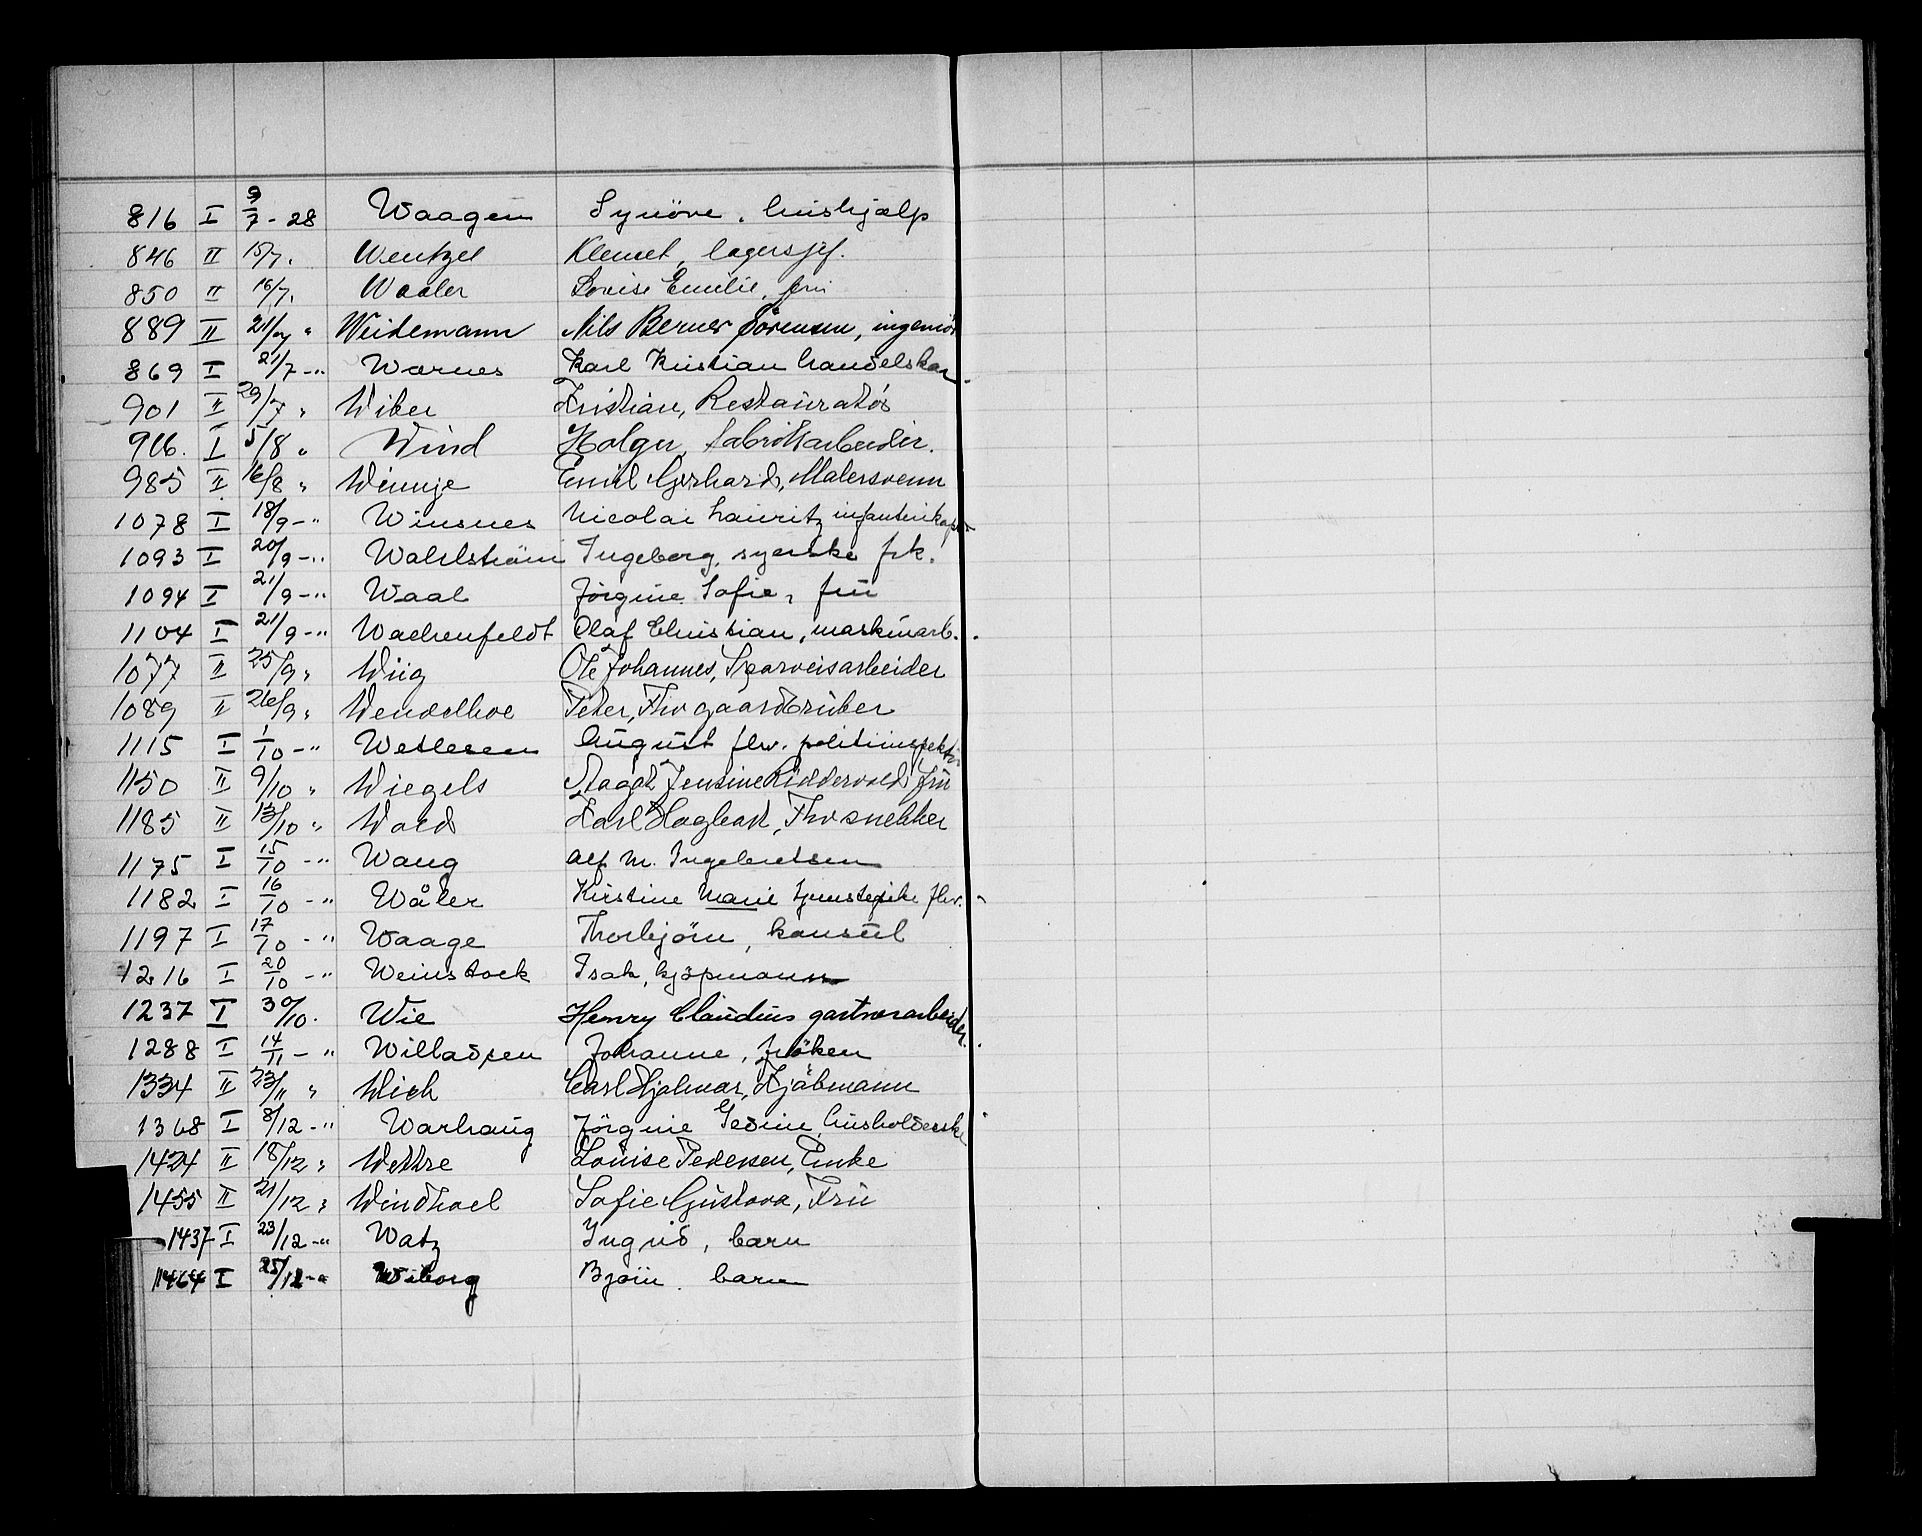 816 I 9/7 - 28 Waagen Synöve, hushjælp
846 II 15/7. Wentzel Klemet, lagersjef.
850 II 16/7. Waaler Lovise Emilie, fru
889 II 21/7 " Weidemann Nils Berner Sörensen, ingeniör
869 I 21/7 - " Warnes Karl Kristian handelskar
901 II 29/7 " Wiber Kristian, Restauratör
916. I 5/8 " Wind Holger, fabrikarbeider.
985 II 16/8 " Winnje Emil Gerhard, Malersvenn
1078 I 18/9 - " Winsnes Nicolai Lauritz infanterikapt
1093 I 20/9 - " Wahlström Ingeborg, syerske frk.
1094 I 21/9 - " Waal Jörgine Sofie, fru
1104 I 21/9 - " Wachenfeldt Olaf Christian, maskinarb.
1077 II 25/9 " Wiig Ole Johannes, Sporveisarbeider
1089 II 26/9 " Wendelboe Peter, Fhv gaardbruker
1115 I 1/10 - " Wetlesen August fhv. politiinspektör
1150 II 9/10 " Wiegels Magda Jensine Riddervold fru
1185 II 13/10 " Wold Karl Hagbart, Fhv snekker
1175 I 15/10 - " Wang Alf M. Ingebretsen
1182 I 16/10 - " Wåler Kirstine Marie tjenstepike fhv.
1197 I 17/10 - " Waage Thorbjörn, konsul
1216 I 20/10 - " Weinstock Isak, kjöpmann
1237 I 30/10. Wie Henry Claudius gartnerarbeider.
1288 I 14/11 - " Willadsen Johanne, fröken
1334 II 23/11 " Wich Carl Hjalmar, Kjöbmann
1368 I 8/12 - " Warhaug Jörgine Gedine, husholderske
1424 II 18/12 " Wettre Louise Pedersen, Enke
1455 II 21/12 " Windhoel Sofie Gustava, Fru
1437 I 23/12 - " Watz Ingrid, barn
1464 I 25/12 - " Wiborg Björn barn